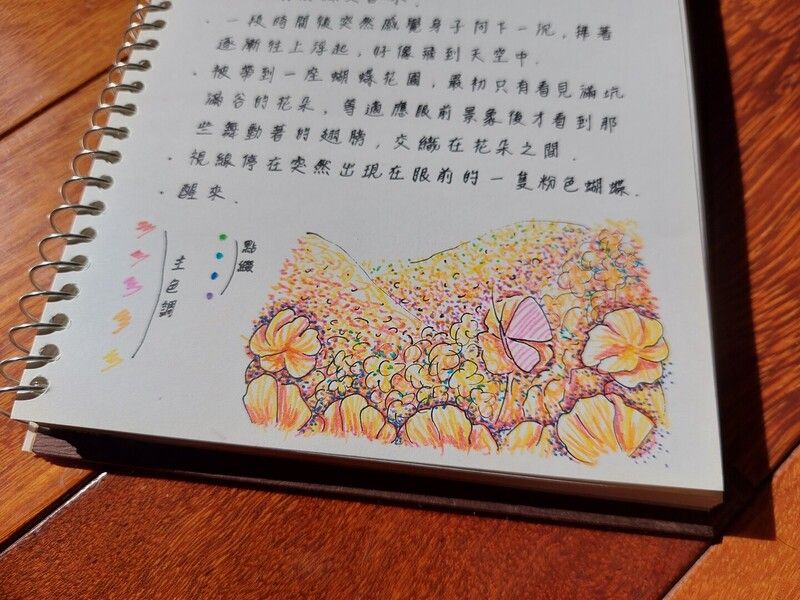 ・一段時間後突然感覺身子向下一沉，接著
逐漸往上浮起，好像飛到天空中．
・被帶到一座蝴蝶花園，最初只有看見滿坑
滿谷的花朵，等適應眼前景象後才看到那
些舞動著的翅膀，交織在花朵之間．
・視線停在突然出現在眼前的一隻粉色蝴蝶．
・醒來．
主色調
點綴